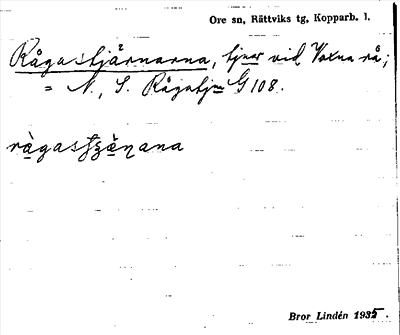 Ore sn, Rättviks tg, Kopparb. l.
Rågastjärnarna, tjnar vid Voxna rå;
= N., S. Rågatjn G 108.
rågastjä̀ṇana
Bror Lindén 1935.